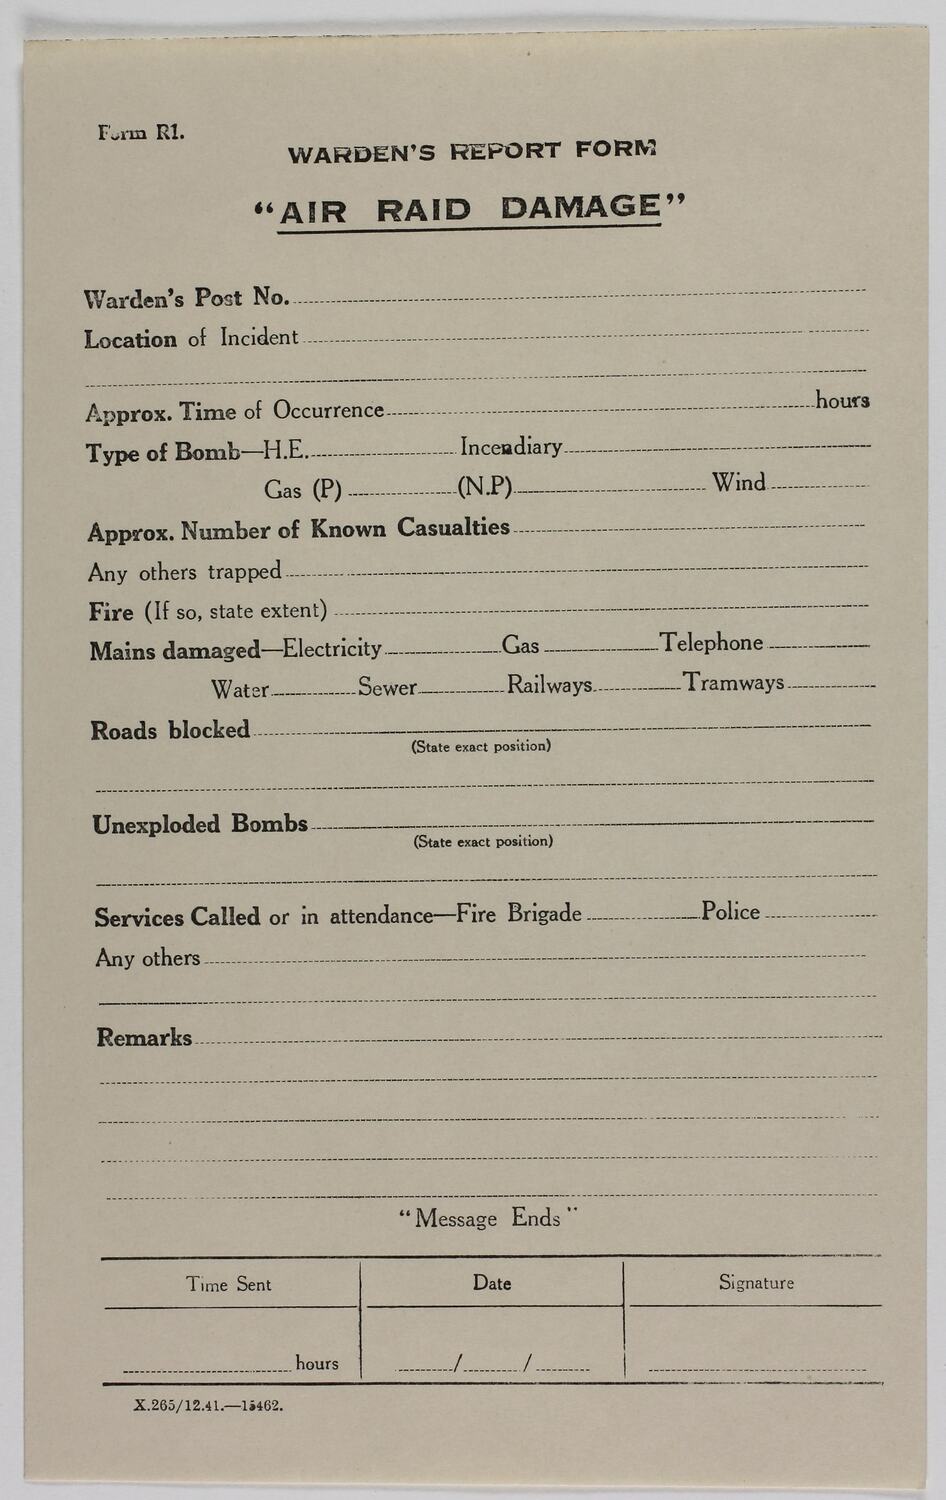 Form R1.
WARDEN'S REPORT FORM
“AIR RAID DAMAGE”
Warden's Post No.
Location of Incident
Approx. Time of Occurrence hours
Type of Bomb—H.E. Incendiary
Gas (P) (N.P) Wind
Approx. Number of Known Casualties
Any others trapped
Fire (If so, state extent)
Mains damaged—Electricity Gas Telephone
Water Sewer Railways Tramways
Roads blocked
(State exact position)
Unexploded Bombs
(State exact position)
Services Called or in attendance—Fire Brigade Police
Any others
Remarks
“Message Ends”
Time Sent Date Signature
hours / /
X.265/12.41.—15462.